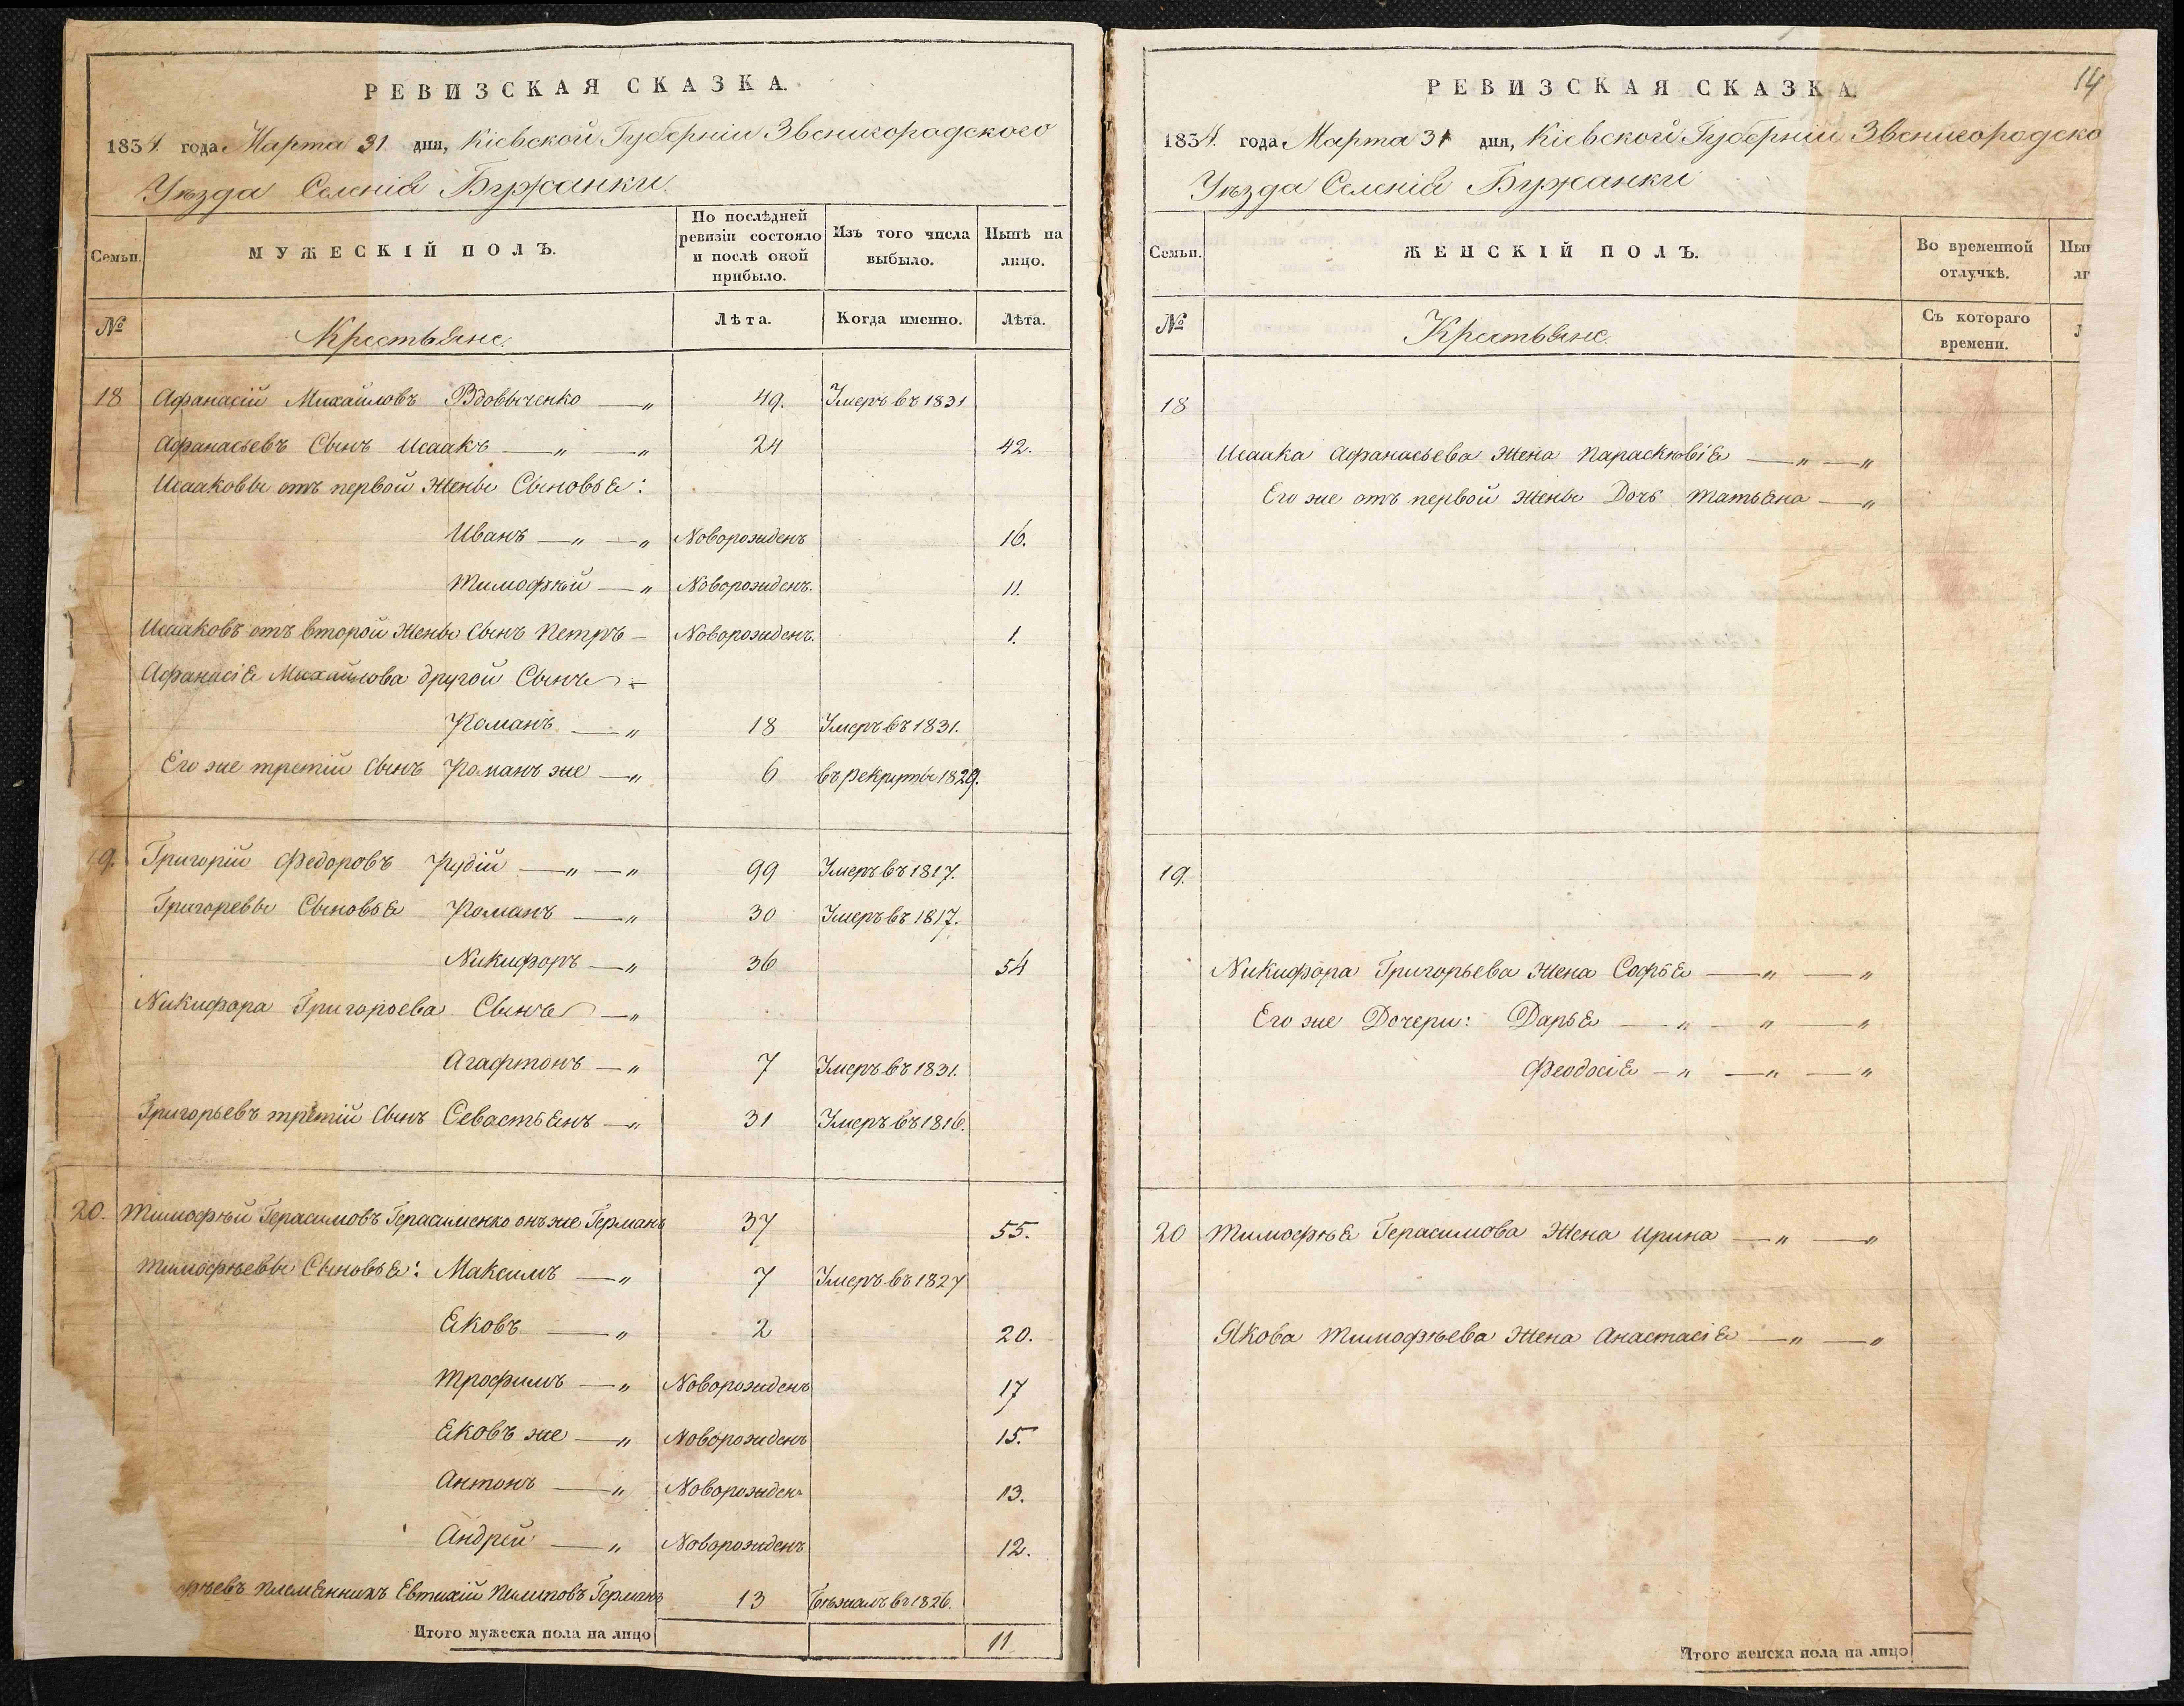 РЕВИЗСКАЯ СКАЗКА.
1834. года Марта 31 дня, Кіевской Губерніи Звенигородского
Уѣзда Селенія Бужанки.
Семьи.
МУЖЕСКІЙ ПОЛЪ.
По послѣдней ревизіи состояло и послѣ оной прибыло.
Изъ того числа выбыло.
Нынѣ на лицо.
№
Крестьяне.
Лѣта.
Когда именно.
Лѣта.
18 Афанасій Михайловъ Вдовыченко — „ 49. Умеръ въ 1831
Афанасьевъ Сынъ Исаакъ — „ — „ 24 42.
Исааковы отъ первой жены Сыновья:
Иванъ — „ — „ Новорожденъ 16.
Тимофѣй — „ Новорожденъ. 11.
Исааковъ отъ второй жены Сынъ Петръ — Новорожденъ. 1.
Афанасія Михайлова другой Сынъ —
Романъ — „ 18 Умеръ въ 1831.
Его же третій Сынъ Романъ же — „ 6 въ рекруты 1829.
19. Григорій Федоровъ Рудій — „ — „ 99 Умеръ въ 1817.
Григоревы Сыновья Романъ — „ 30 Умеръ въ 1817.
Никифоръ — „ 36 54
Никифора Григорьева Сынъ — „
Агафтонъ — „ 7 Умеръ въ 1831.
Григорьевъ третій Сынъ Севастьянъ — „ 31 Умеръ въ 1816.
20. Тимофѣй Герасимовъ Герасименко онъ же Германъ 37 55.
Тимофѣевы Сыновья: Максимъ — „ 7 Умеръ въ 1827
Яковъ — „ 2 20.
Трофимъ — „ Новорожденъ 17
Яковъ же — „ Новорожденъ 15.
Антонъ — „ Новорожденъ 13.
Андрей — „ Новорожденъ 12.
ѣевъ племянникъ Евтихій Пилиповъ Германъ 13 Бѣжалъ въ 1826.
Итого мужеска пола на лицо 11.
14
РЕВИЗСКАЯ СКАЗКА.
1834. года Марта 31 дня, Кіевской Губерніи Звенигородско
Уѣзда Селенія Бужанки
Семьи.
ЖЕНСКІЙ ПОЛЪ.
Во временной отлучкѣ.
Нын
ли
№
Крестьяне.
Съ котораго времени.
18
Исаака Афанасьева Жена Параскювія — „ — „
Его же отъ первой жены Дочь Татьяна — „
19.
Никифора Григорьева Жена Софья — „ — „
Его же Дочери: Дарья — „ — „ — „
Феодосія — „ — „ — „
20 Тимофѣя Герасимова Жена Ирина — „ — „
Якова Тимофѣева Жена Анастасія — „ — „
Итого женска пола на лицо